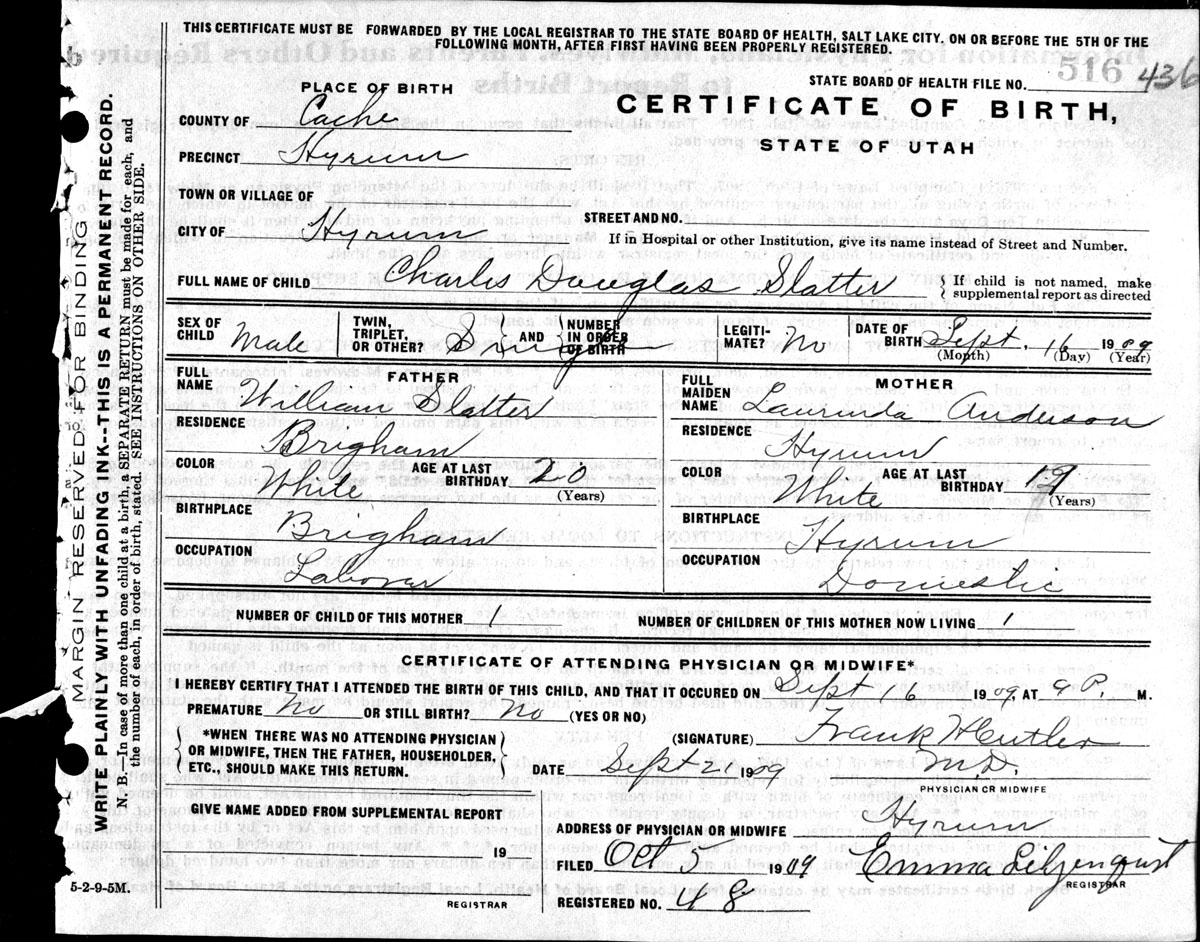 THIS CERTIFICATE MUST BE FORWARDED BY THE LOCAL REGISTRAR TO THE STATE BOARD OF HEALTH, SALT LAKE CITY, ON OR BEFORE THE 5TH OF THE
FOLLOWING MONTH, AFTER FIRST HAVING BEEN PROPERLY REGISTERED.
STATE BOARD OF HEALTH FILE NO. 516 436
PLACE OF BIRTH
CERTIFICATE OF BIRTH,
STATE OF UTAH
COUNTY OF Cache
PRECINCT Hyrum
TOWN OR VILLAGE OF
STREET AND NO.
CITY OF Hyrum
If in Hospital or other Institution, give its name instead of Street and Number.
FULL NAME OF CHILD Charles Douglas Slatter
If child is not named, make
supplemental report as directed
SEX OF CHILD Male
TWIN, TRIPLET, OR OTHER? Single AND NUMBER IN ORDER OF BIRTH
LEGITI-MATE? No
DATE OF BIRTH Sept. 16 1909
(Month) (Day) (Year)
FATHER
FULL NAME William Slatter
RESIDENCE Brigham
COLOR White AGE AT LAST BIRTHDAY 20
(Years)
BIRTHPLACE Brigham
OCCUPATION Laborar
MOTHER
FULL MAIDEN NAME Laurinda Anderson
RESIDENCE Hyrum
COLOR White AGE AT LAST BIRTHDAY 19
(Years)
BIRTHPLACE Hyrum
OCCUPATION Domestic
NUMBER OF CHILD OF THIS MOTHER 1 NUMBER OF CHILDREN OF THIS MOTHER NOW LIVING 1
CERTIFICATE OF ATTENDING PHYSICIAN OR MIDWIFE*
I HEREBY CERTIFY THAT I ATTENDED THE BIRTH OF THIS CHILD, AND THAT IT OCCURED ON Sept 16 1909, AT 9 P. M.
PREMATURE No OR STILL BIRTH? No (YES OR NO)
*WHEN THERE WAS NO ATTENDING PHYSICIAN
OR MIDWIFE, THEN THE FATHER, HOUSEHOLDER,
ETC., SHOULD MAKE THIS RETURN.
(SIGNATURE) Frank H Cutler
DATE Sept 21 1909 M.D.
PHYSICIAN OR MIDWIFE
GIVE NAME ADDED FROM SUPPLEMENTAL REPORT
19
REGISTRAR
ADDRESS OF PHYSICIAN OR MIDWIFE Hyrum
FILED Oct 5 1909 Emma Liljenquist
REGISTRAR
REGISTERED NO. 48
5-2-9-5M.
MARGIN RESERVED FOR BINDING
WRITE PLAINLY WITH UNFADING INK--THIS IS A PERMANENT RECORD.
N. B.—In case of more than one child at a birth, a SEPARATE RETURN must be made for each, and
the number of each, in order of birth, stated. SEE INSTRUCTIONS ON OTHER SIDE.